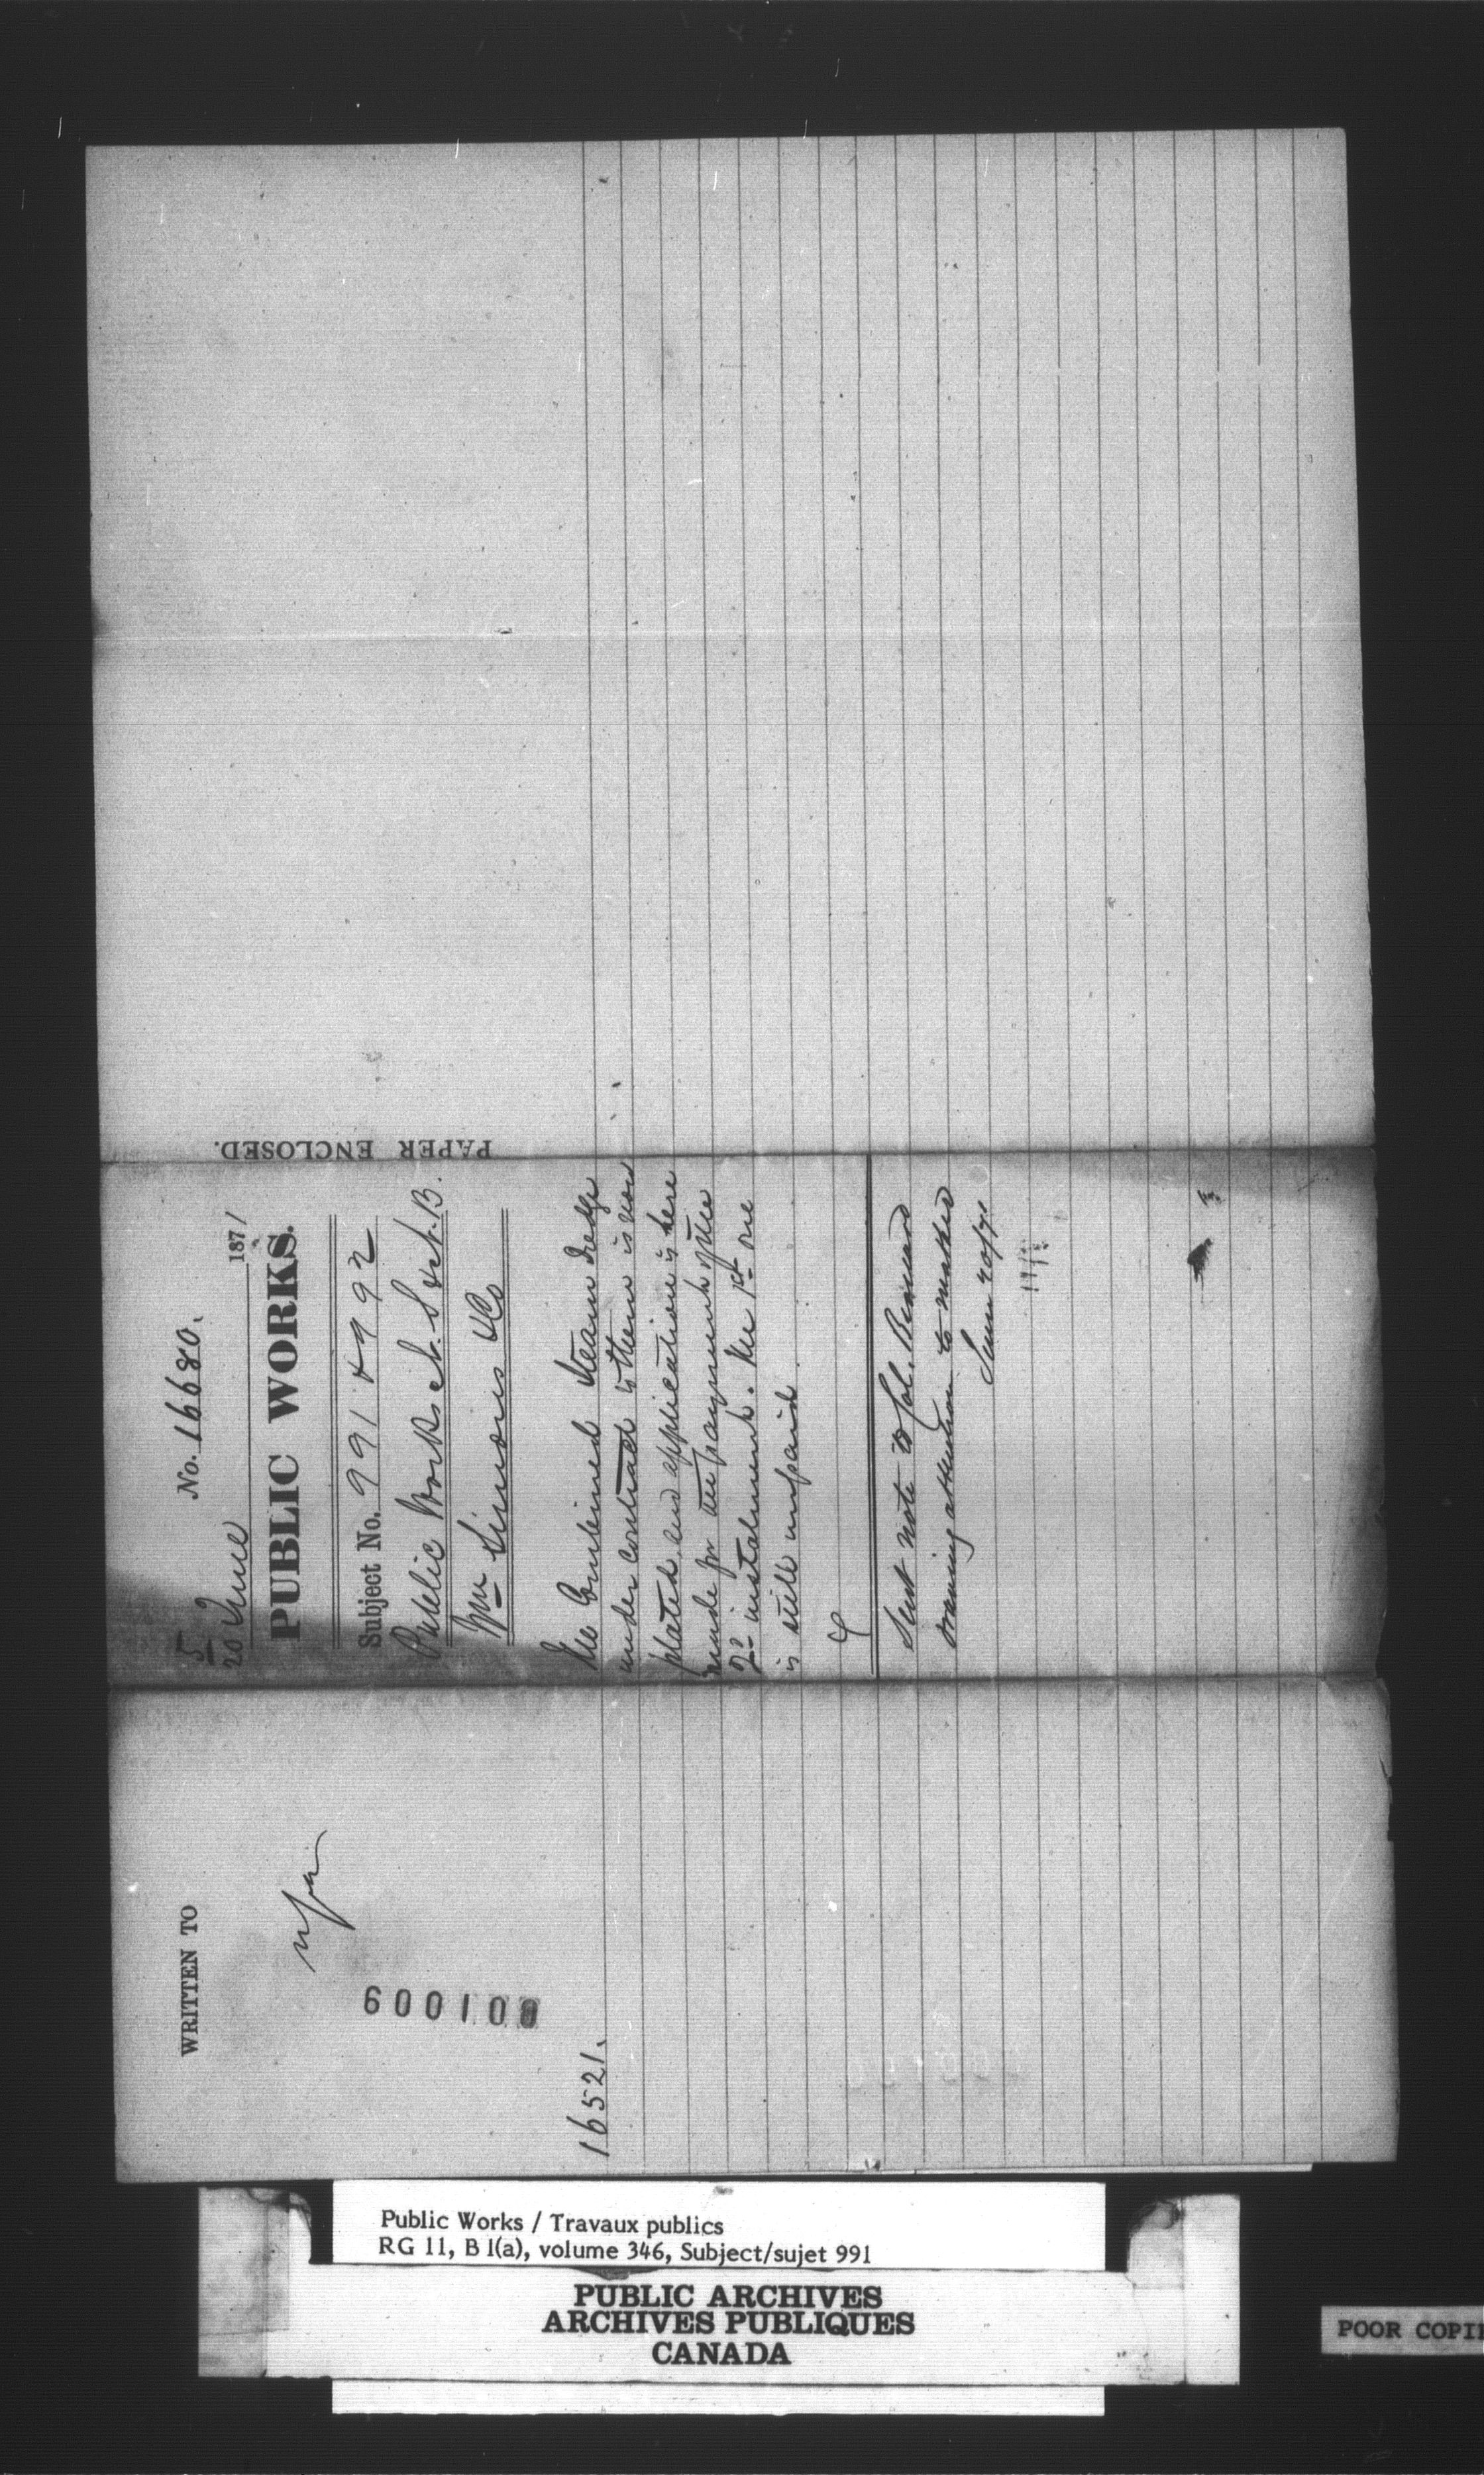 No. 16680.
5
20 June 1871
PUBLIC WORKS.
Subject No. 991 & 992
Public Works
Wm Simons & Co
The Combined Steam Dredge
under contract to them is now
plated, and application is here
made for the payment of the
2d instalment. The 1st one
is still unpaid.
Sent note to Col. Bernard
drawing attention to matter
PAPER ENCLOSED.
WRITTEN TO
600100
16521.
Public Works / Travaux publics
RG 11, B 1(a), volume 346, Subject/sujet 991
PUBLIC ARCHIVES
ARCHIVES PUBLIQUES
CANADA
POOR COPI